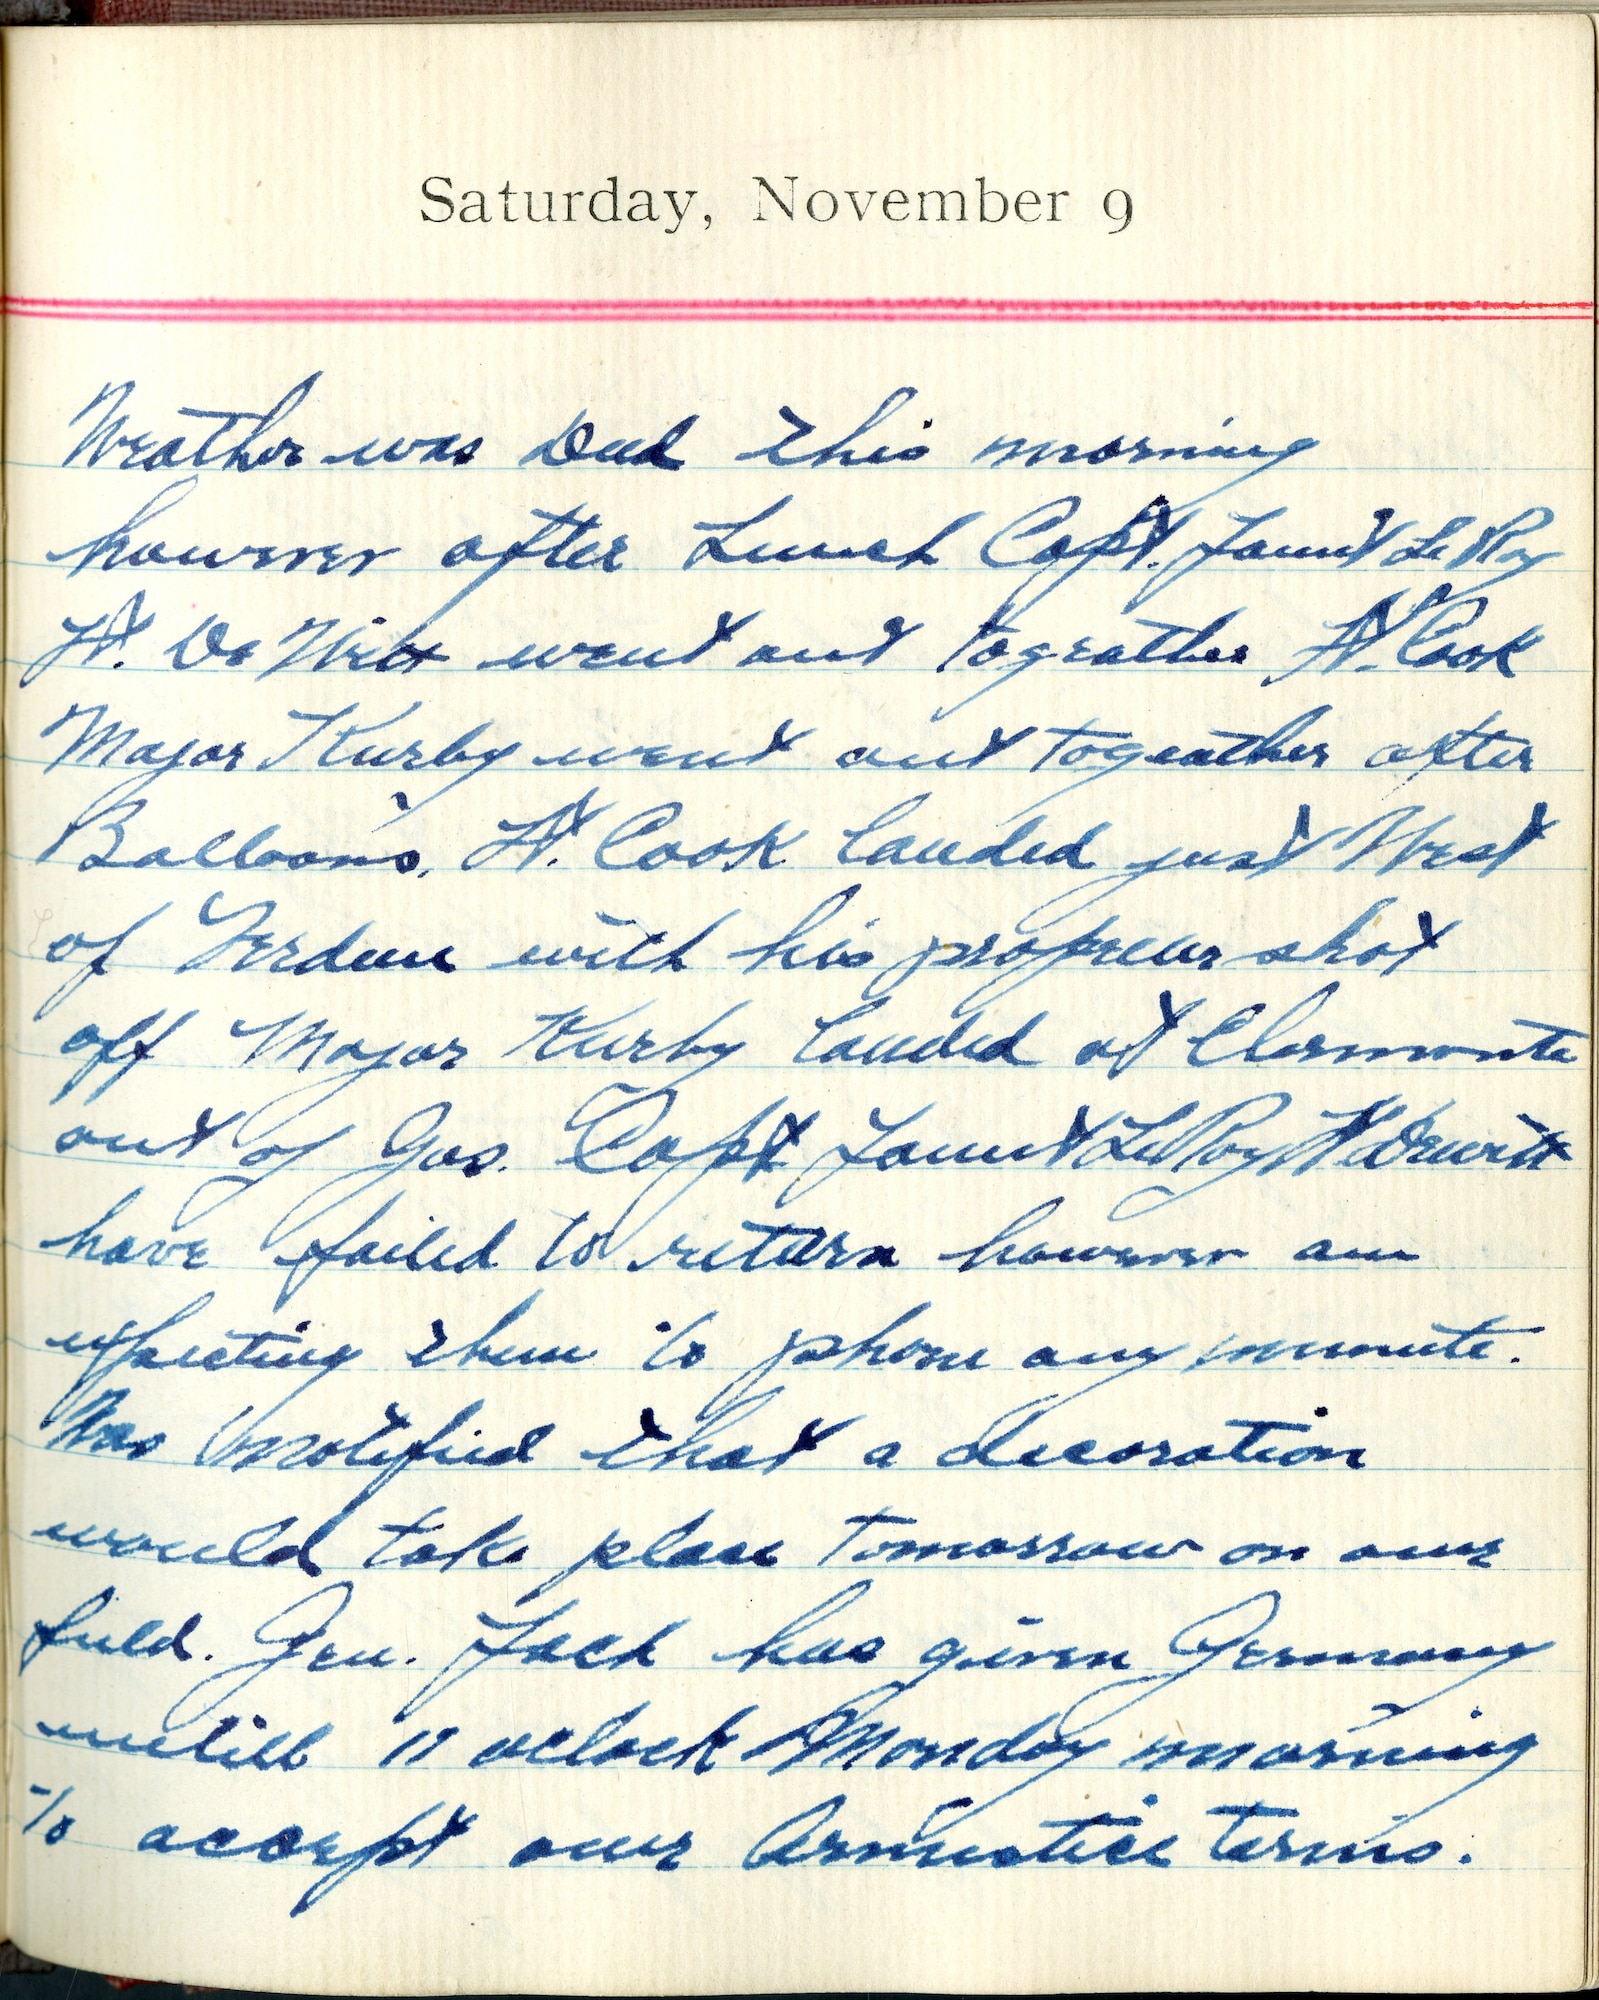 Saturday, November 9
Weather was Dud this morning
however after Lunch Capt. Fauntleroy
Lt. De Witt went out togeather Lt. Cook
Major Kirby went out togeather after
Balloons. Lt. Cook landed just West
of Verdun with his propeller shot
off Major Kirby landed at Clermonte
out of Gas. Capt FauntLeRoy Lt Dewitt
have failed to return however am
expecting them to phone any minute.
Was notified that a decoration
would take place tomorrow on our
field. Gen. Foch has given Germany
untill 11 oclock Monday morning
to accept our Armistice terms.